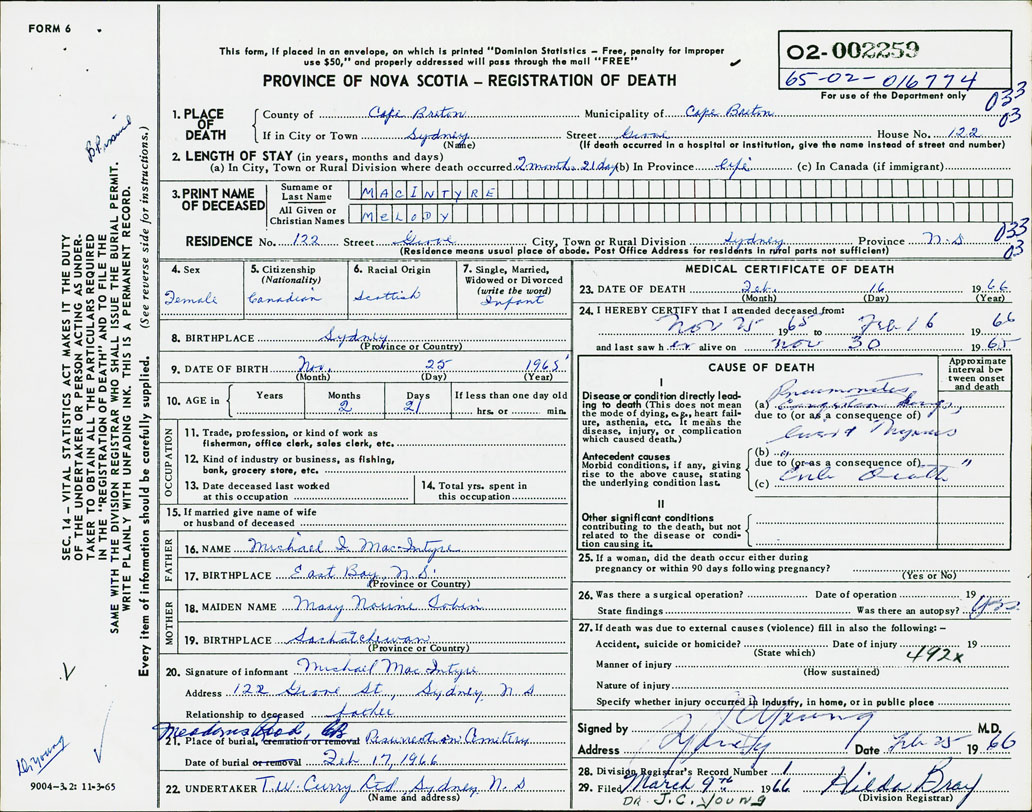 FORM 6
This form, if placed in an envelope, on which is printed "Dominion Statistics – Free, penalty for improper
use $50," and properly addressed will pass through the mail "FREE"
PROVINCE OF NOVA SCOTIA – REGISTRATION OF DEATH
02-002259
65-02-016774
For use of the Department only
033
03
1. PLACE OF DEATH
County of Cape Breton Municipality of Cape Breton
If in City or Town Sydney Street Grove House No. 122
(Name) (If death occurred in a hospital or institution, give the name instead of street and number)
2. LENGTH OF STAY (in years, months and days)
(a) In City, Town or Rural Division where death occurred 2 months 21 day (b) In Province Life (c) In Canada (if immigrant)
3. PRINT NAME OF DECEASED
Surname or Last Name MACINTYRE
All Given or Christian Names MeLODY
033
03
RESIDENCE No. 122 Street Grove City, Town or Rural Division Sydney Province N.S
(Residence means usual place of abode. Post Office Address for residents in rural parts not sufficient)
4. Sex
Female
5. Citizenship
(Nationality)
Canadian
6. Racial Origin
Scottish
7. Single, Married,
Widowed or Divorced
(write the word)
Infant
8. BIRTHPLACE Sydney
(Province or Country)
9. DATE OF BIRTH Nov. 25 1965
(Month) (Day) (Year)
10. AGE in
Years Months Days If less than one day old
2 21 hrs. or min.
OCCUPATION
11. Trade, profession, or kind of work as
fisherman, office clerk, sales clerk, etc.
12. Kind of industry or business, as fishing,
bank, grocery store, etc.
13. Date deceased last worked
at this occupation
14. Total yrs. spent in
this occupation
15. If married give name of wife
or husband of deceased
FATHER
16. NAME Michael I. MacIntyre
17. BIRTHPLACE East Bay, N.S.
(Province or Country)
MOTHER
18. MAIDEN NAME Mary Norine Tobin
19. BIRTHPLACE Saskatchewan
(Province or Country)
20. Signature of informant Michael MacIntyre
Address 122 Grove St., Sydney N S
Relationship to deceased father
Meadows Road, CB
21. Place of burial, cremation or removal Resurrection Cemetery
Date of burial or removal Feb 17, 1966
22. UNDERTAKER T.W. Curry Ltd, Sydney N. S
(Name and address)
MEDICAL CERTIFICATE OF DEATH
23. DATE OF DEATH Feb. 16 1966
(Month) (Day) (Year)
24. I HEREBY CERTIFY that I attended deceased from:
Nov 25 1965 to Feb 16 1966
and last saw h er alive on Nov 30 1965
CAUSE OF DEATH
Approximate interval between onset and death
I
Disease or condition directly leading to death (This does not mean the mode of dying, e.g., heart failure, asthenia, etc. It means the disease, injury, or complication which caused death.)
Pneumonitis
(a)
due to (or as a consequence of)
Antecedent causes
Morbid conditions, if any, giving rise to the above cause, stating the underlying condition last.
(b)
due to (or as a consequence of) "
(c) Crib Death
II
Other significant conditions
contributing to the death, but not related to the disease or condition causing it.
25. If a woman, did the death occur either during
pregnancy or within 90 days following pregnancy?
(Yes or No)
26. Was there a surgical operation? Date of operation 19
State findings Was there an autopsy? Yes
27. If death was due to external causes (violence) fill in also the following: –
Accident, suicide or homicide? Date of injury 19
(State which) 492x
Manner of injury
(How sustained)
Nature of injury
Specify whether injury occurred in industry, in home, or in public place
Signed by J C Young M.D.
Address Sydney Date Feb 25 1966
28. Division Registrar's Record Number 1
29. Filed March 9th 1966 Hilda Bray
(Division Registrar)
DR. J.C. YOUNG
SEC. 14 – VITAL STATISTICS ACT MAKES IT THE DUTY
OF THE UNDERTAKER OR PERSON ACTING AS UNDER-
TAKER TO OBTAIN ALL THE PARTICULARS REQUIRED
IN THE "REGISTRATION OF DEATH" AND TO FILE THE
SAME WITH THE DIVISION REGISTRAR WHO SHALL ISSUE THE BURIAL PERMIT.
WRITE PLAINLY WITH UNFADING INK. THIS IS A PERMANENT RECORD.
Every item of information should be carefully supplied. (See reverse side for instructions.)
9004–3.2: 11-3-65